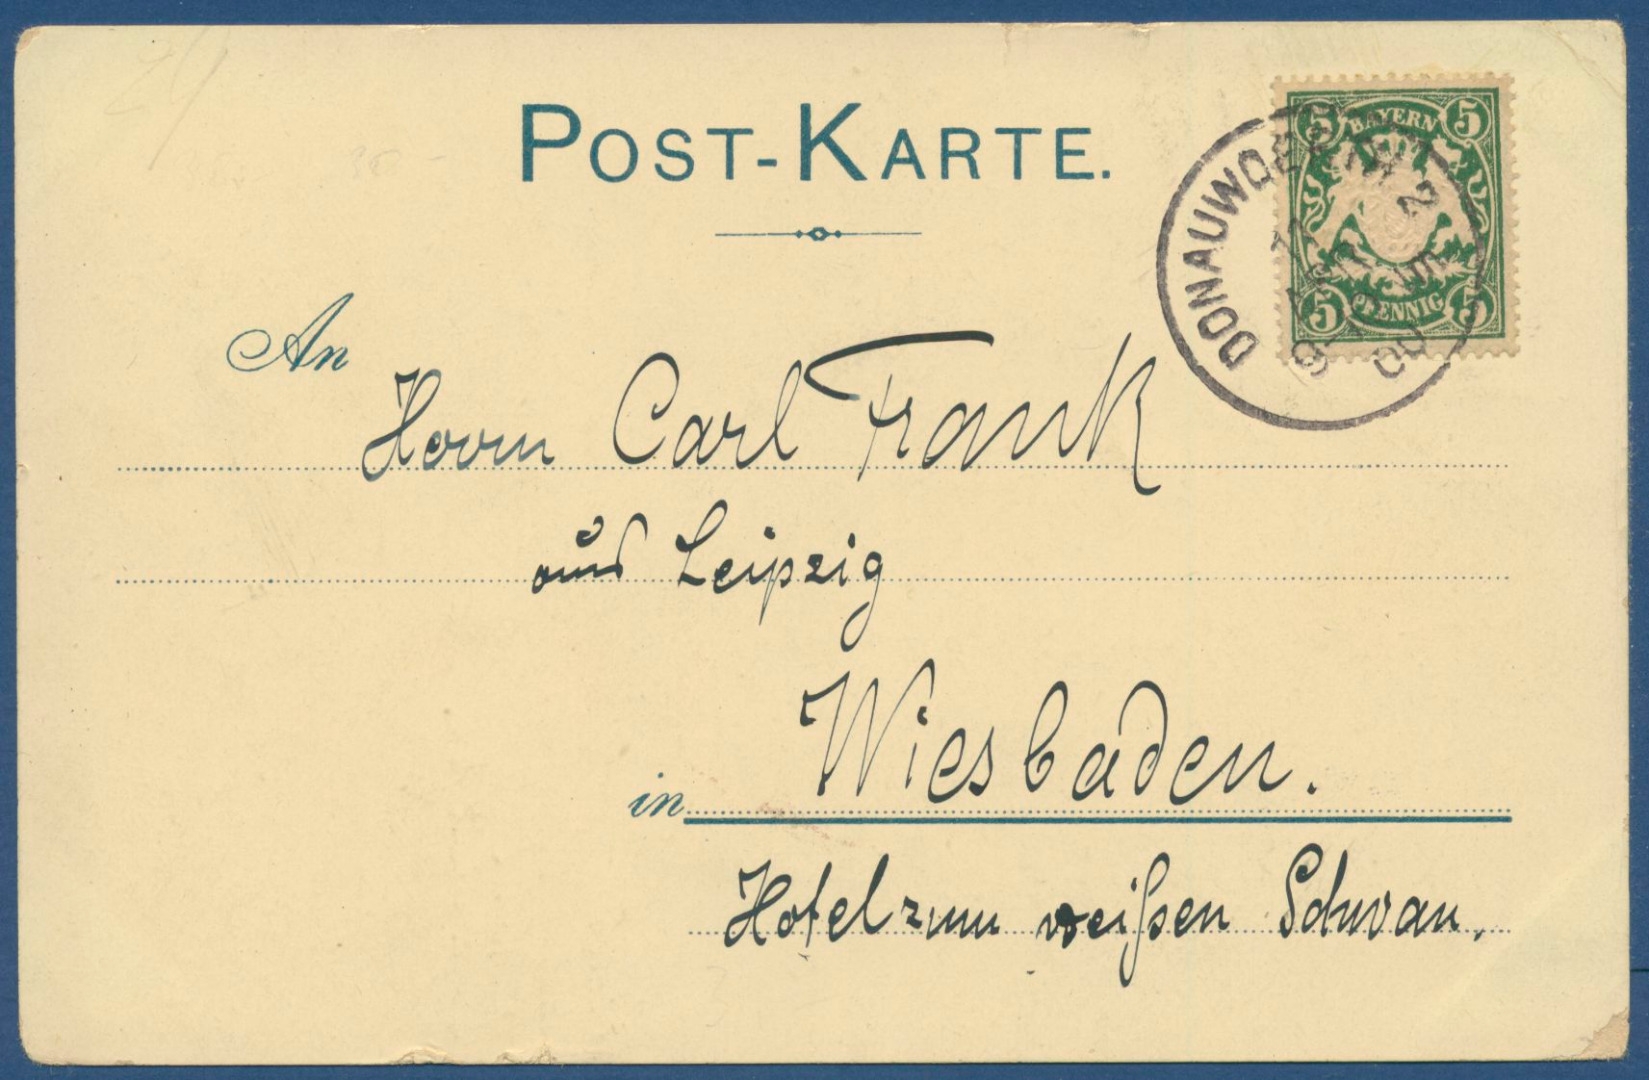 POST-KARTE.
BAYERN
5 5
5 5
PFENNIG
DONAUWOERTH 2
An
Herrn Carl Frank
aus Leipzig
in Wiesbaden.
Hotel zum weißen Schwan.